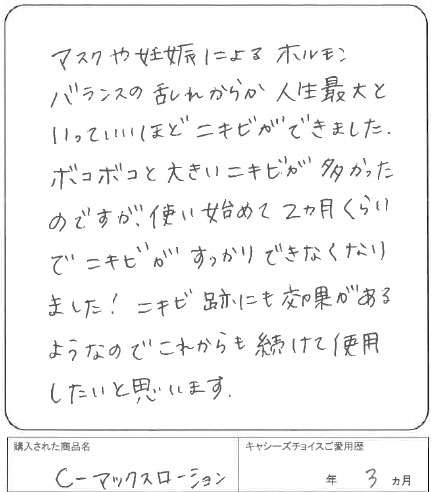 マスクや妊娠によるホルモン
バランスの乱れからか人生最大と
いっていいほどニキビができました.
ボコボコと大きいニキビが多かった
のですが、使い始めて2カ月くらい
でニキビがすっかりできなくなり
ました!ニキビ跡にも効果がある
ようなのでこれからも続けて使用
したいと思います.
購入された商品名
C-マックスローション
キャシーズチョイスご愛用歴
年 3 ヵ月